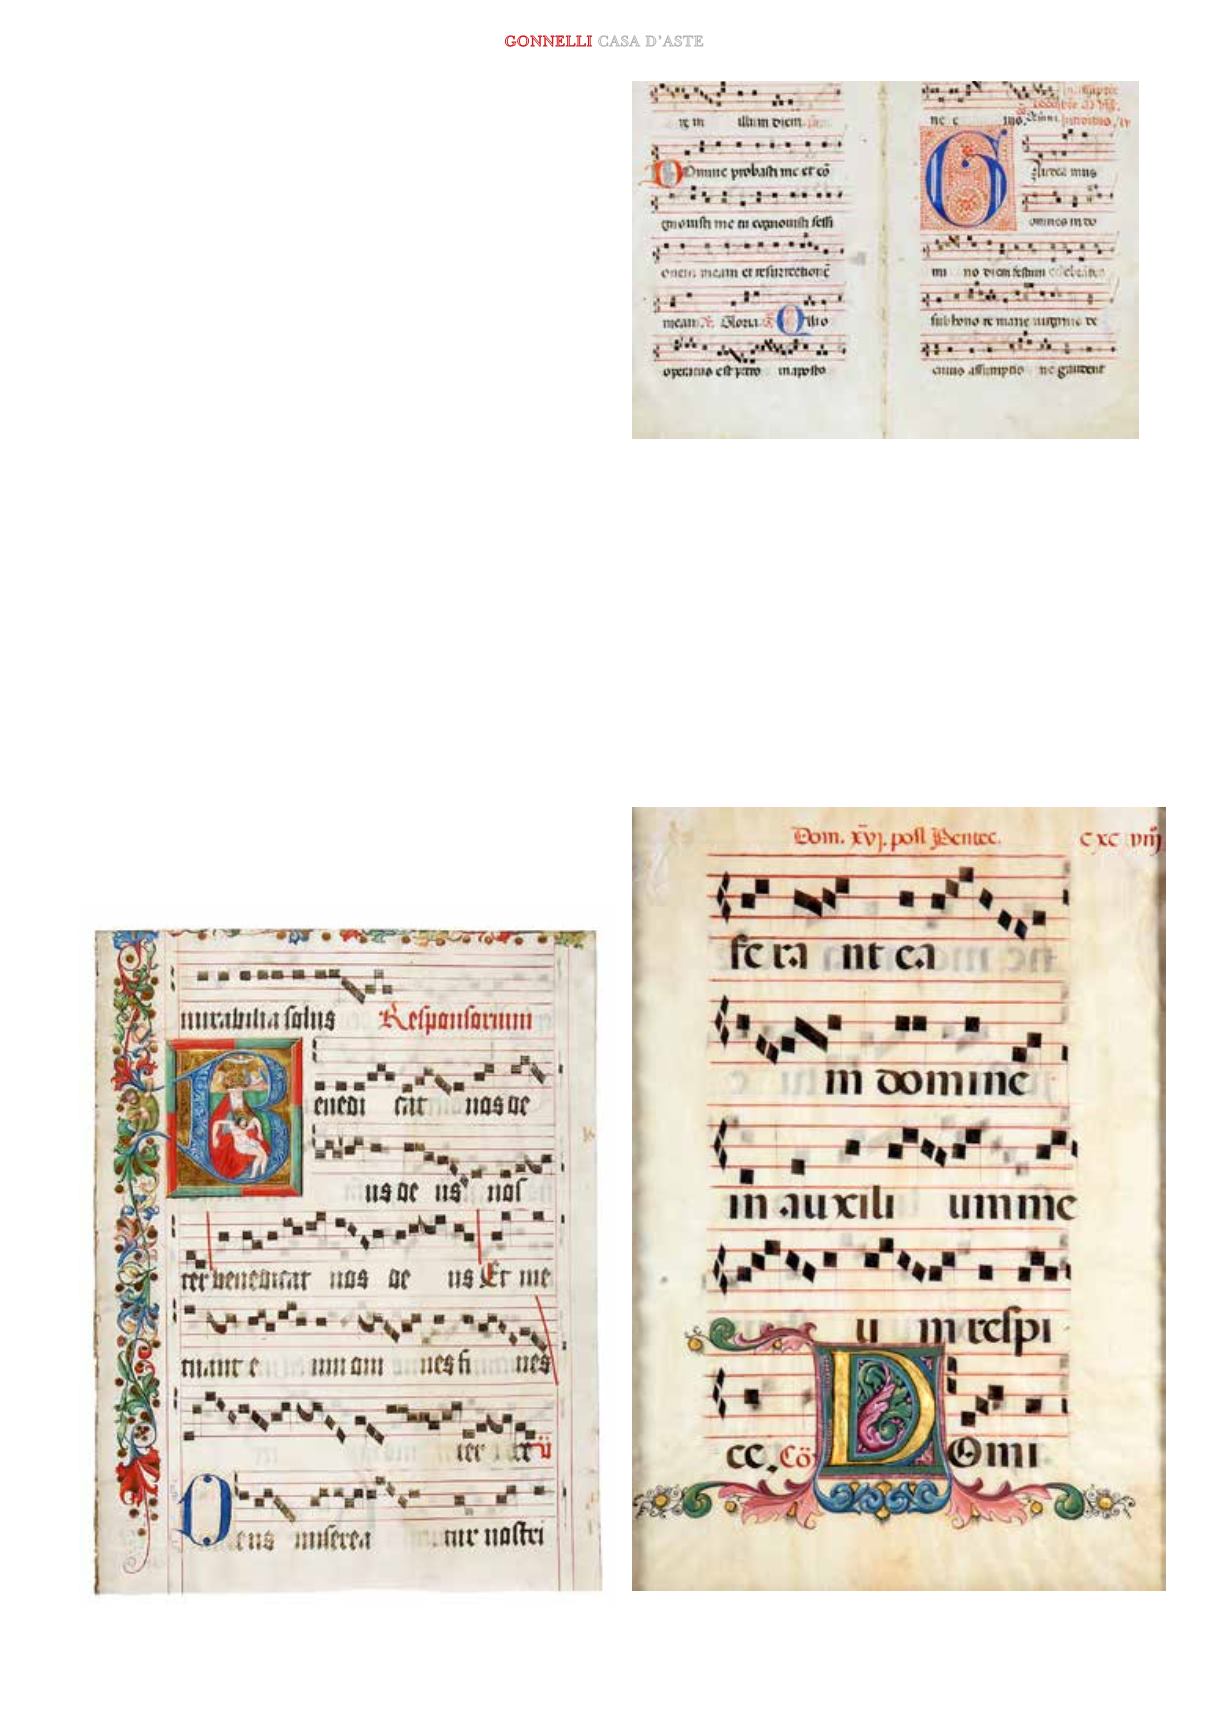 GONNELLI CASA D'ASTE
re m illum diem
Domine probasti me et cō
gnouisti me tu cognouisti sessi
onem meam et resurrectionē
mean Gloria Qui o
operatus est petro in aposto
ne
Gaudea mus
omnes in do
mi no diem festum celebrantes
sub hono re marie uirginis de
cuius assumptio ne gaudent
mirabilia solus Responsorium
Benedi cat nos de
us de us nos
ter benedicat nos de us Et me
tuant e um om nes fi nes
ter re
Deus miserea tur nostri
Dom. xvj. post Pentec.
fe ra nt ea
in domine
in auxili um me
u m respi
ce. Cō Domi